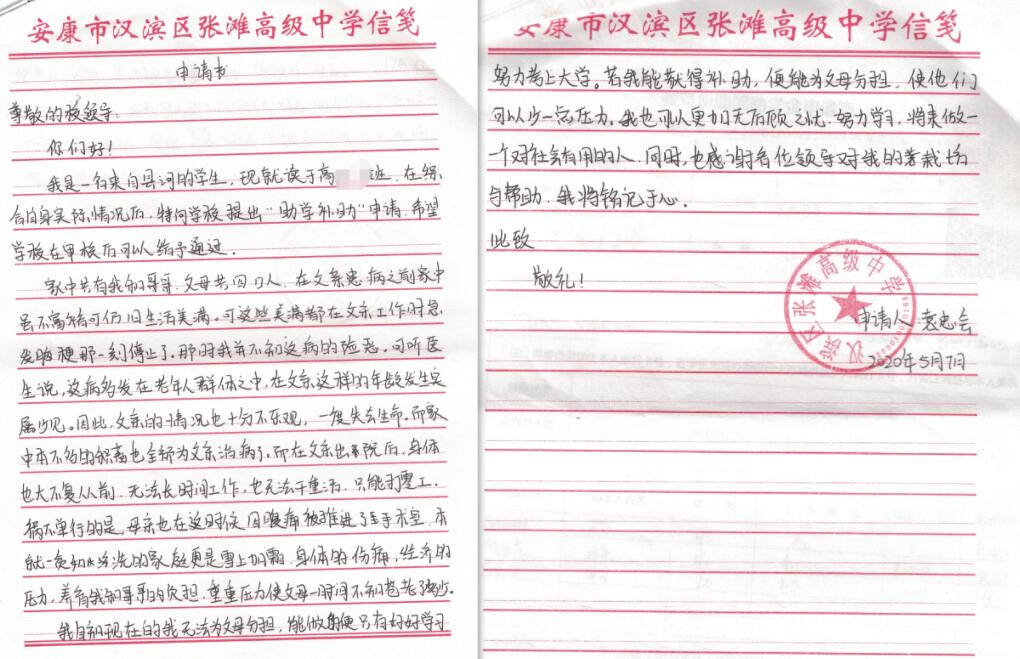 安康市汉滨区张滩高级中学信笺
申请书
尊敬的校领导:
你们好!
我是一名来自县河的学生,现就读于高 班.在综
合自身实际情况后,特向学校提出“助学补助”申请.希望
学校在审核后可以给予通过.
家中共有我和哥哥.父母共四口人.在父亲患病之前家中
虽不富裕可仍旧生活美满.可这些美满都在父亲工作时急
发脑梗那一刻停止了.那时我并不知这病的险恶.可听医
生说,这病多发在老年人群体之中,在父亲这样的年龄发生实
属少见。因此,父亲的情况也十分不乐观,一度失去生命.而家
中本不多的积蓄也全部为父亲治病了.而在父亲出院后,身体
也大不复从前.无法长时间工作,也无法干重活.只能打零工.
祸不单行的是,母亲也在这时候因腹痛被推进了手术室.本
就一贫如洗的家庭更是雪上加霜.身体的伤痛,经济的
压力,养育我和哥哥的负担.重重压力使父母一时间不知苍老了多少.
我自知现在的我无法为父母分担,能做的便只有好好学习
安康市汉滨区张滩高级中学信笺
努力考上大学。若我能获得补助,便能为父母分担,使他们
可以少一点压力.我也可以更加无后顾之忧.努力学习,将来做一
一个对社会有用的人.同时,也感谢各位领导对我的栽培
与帮助.我将铭记于心.
此致
敬礼!
汉滨区张滩高级中学
申请人:袁忠会
2020年5月7日